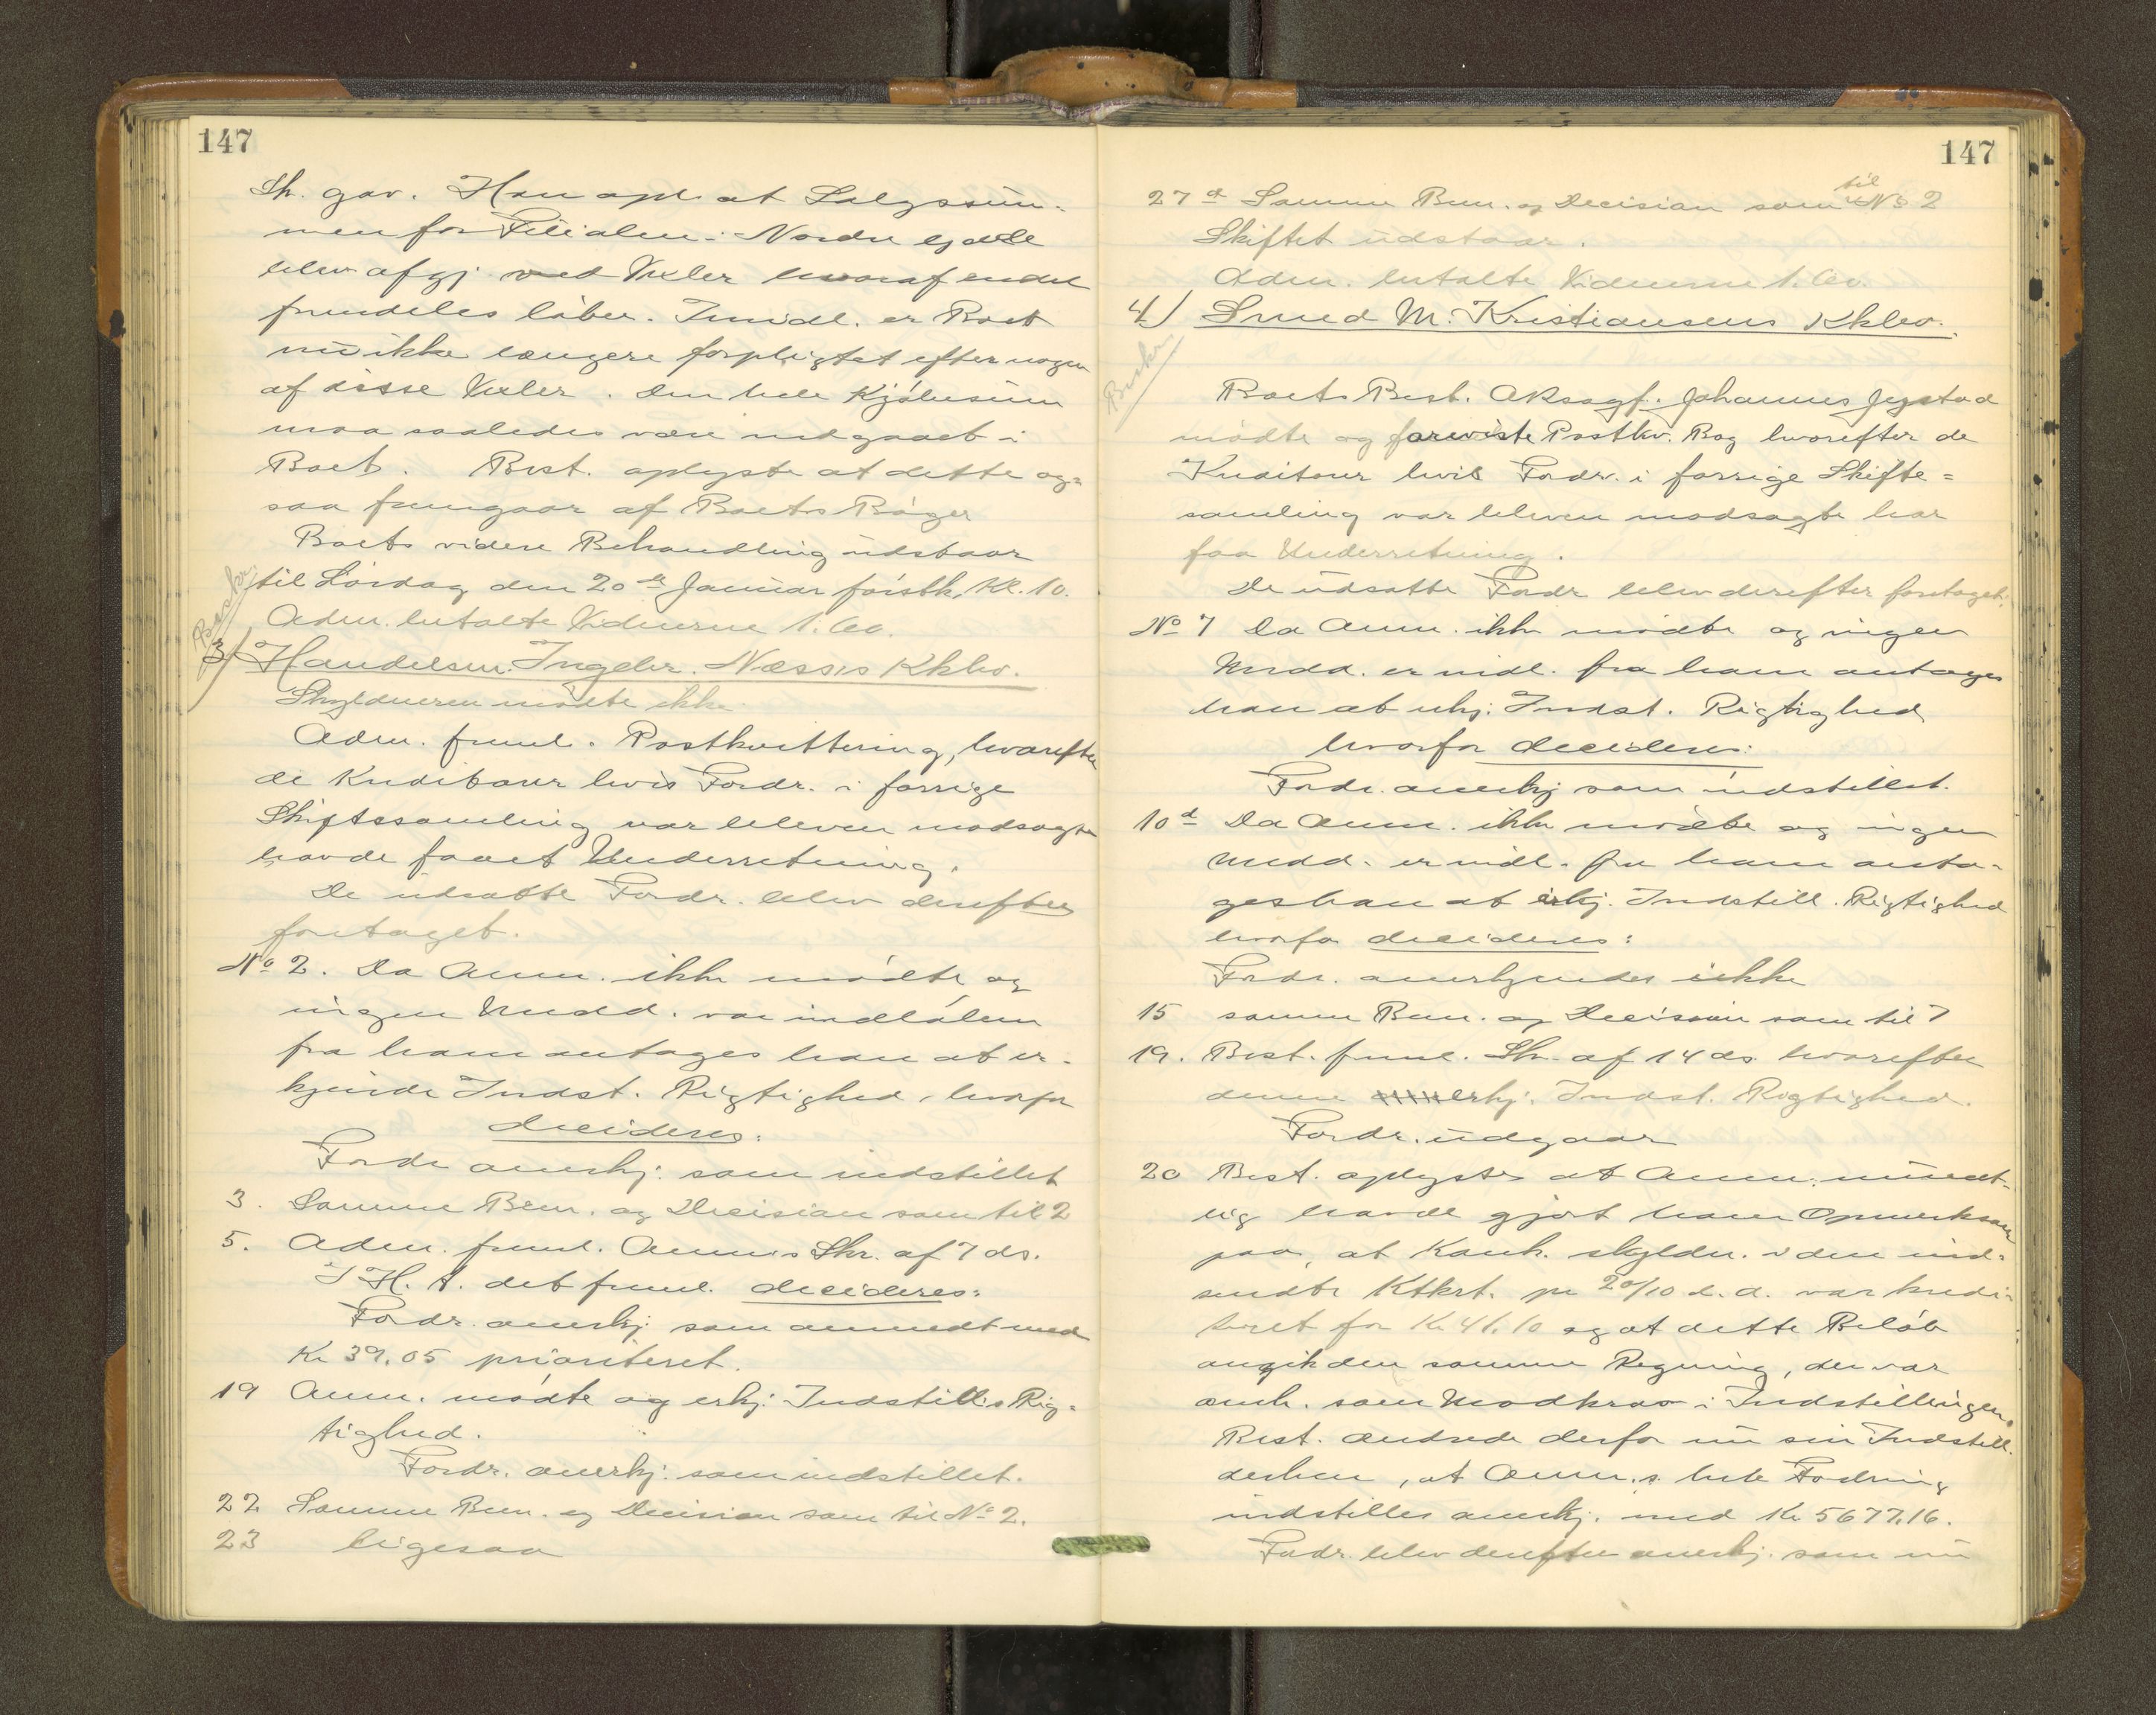 147
Sk. gav. Han opl. at Salgssum-
men for Filialen i Nordre
blev afgj. ved Vexler hvoraf endel
fremdeles löber. Imidl. er Boet
nu ikke længere forpligtet efter nogen
af disse Vexler. Den hele Kjöbesum
maa saaledes være indgaaet i
Boet. Best. oplyste at dette og-
saa fremgaar af Boets Böger
Boets videre Behandling udstaar
til Lördag den 20de Januar förstk. Kl. 10.
Adm. betalte Vidnerne 1.60.
Beskr.
3) Handelsm. Ingebr. Næsses Kkbo.
Skyldneren mödte ikke
Adm. freml. Postkvittering, hvorefter
de Kreditorer hvis Fordr. i forrige
Skiftesamling var bleven modsagte
havde faaet Underretning.
De udsatte Fordr. blev derefter
foretaget.
No 2. Da Anm. ikke mödte og
ingen Medd. var indlöben
fra ham antages han at er-
kjende Indst. Rigtighed, hvorfor
decideres:
Fordr anerkj. som indstillet
3. Samme Bem. og Decision som til 2
5. Adm. freml. Anm.s Skr. af 7 ds.
I H. t. det freml. decideres:
Fordr. anerkj. som anmeldt med
Kr 39.05 prioriteret.
19 Anm. mödte og erkj. Indstill.s Rig-
tighed.
Fordr. anerkj. som indstillet.
22 Samme Bem. og Decision som til No 2.
23 ligesaa
147
27d Samme Bem. og Decision som til No 2
Skiftet udstaar.
Adm. betalte Vidnerne 1.60.
4) Smed M. Kristiansens Kkbo.
Beskr.
Boets Best. O.R.sagf. Johannes Jegstad
mödte og foreviste Postkv. Bog hvorefter de
Kreditorer hvis Fordr. i forrige Skifte-
samling var bleven modsagte har
faa Underretning.
De udsatte Fordr blev derefter foretaget.
No 7 Da Anm. ikke mödte og ingen
Medd. er indl. fra ham antages
han at erkj. Indst. Rigtighed
hvorfor decideres:
Fordr. anerkj som indstillet.
10d Da Anm. ikke mödte og ingen
Medd. er indl. fra ham anta-
ges han at erkj. Indstill. Rigtighed
hvorfor decideres:
Fordr. anerkjendes ikke
15 samme Bem. og Decision som til 7
19. Best. freml. Skr. af 14 ds. hvorefter
denne erkj. Indst. Rigtighed.
Fordr. udgaar
20 Best. oplyste at Anm. mundt-
lig havde gjort ham Opmerksom
paa, at Konk. skyldn. i den ind-
sendte Ktkrt. pr 20/10 d. a. var kredi-
teret for Kr 41.10 og at dette Belöb
angik den samme Regning, der var
anf. som Modkrav i Indstillingen.
Best. ændrede derfor nu sin Indstill.
derhen, at Anm.s hele Fordring
indstilles anerkj. med Kr 5677.16.
Fordr. blev derefter anerkj. som nu